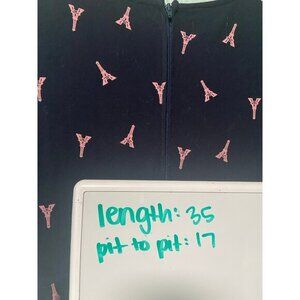 length: 35
pit to pit: 17